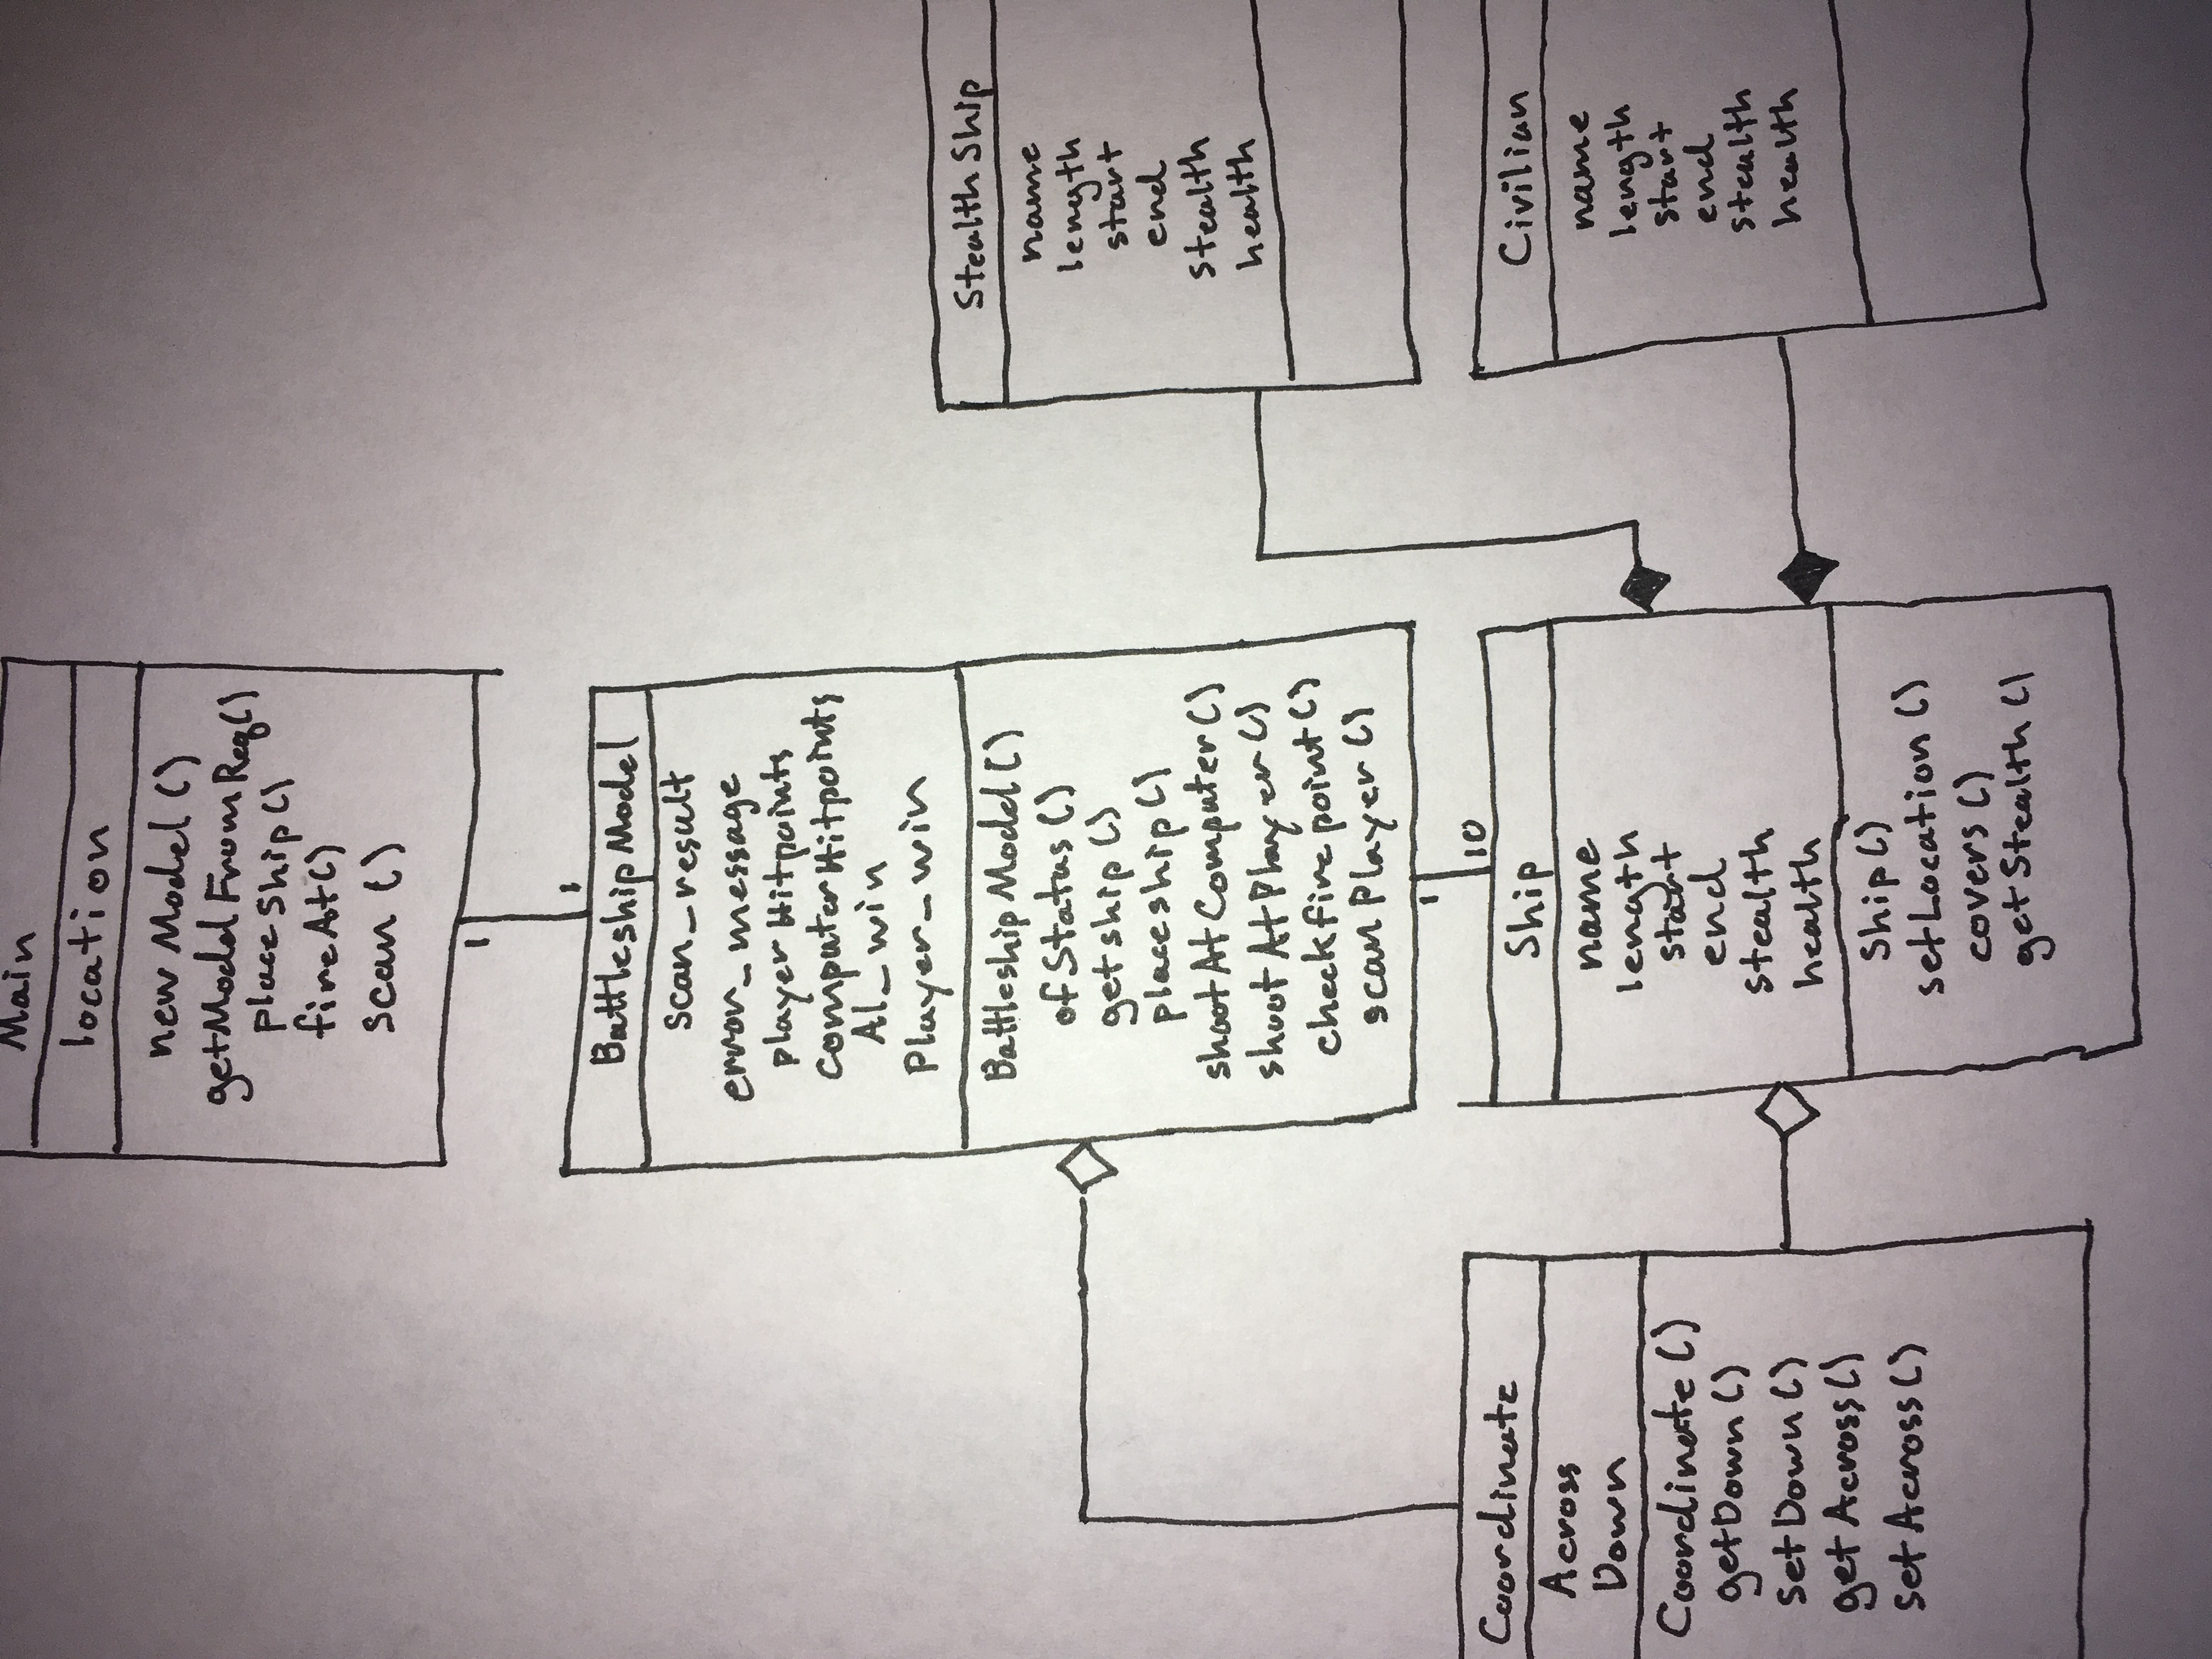 Main
location
new Model ()
getModelFromReq()
place Ship ()
fireAt()
scan ()
1
1
Battleship Model
scan_result
error_message
player Hitpoints
Computer Hitpoints
AI_win
Player_win
Battleship Model ()
of Status ()
get ship ()
place ship ()
shoot At Computer ()
shoot At Player ()
check fire point ()
scan Player ()
1
10
Stealth Ship
name
length
start
end
stealth
health
Coordinate
Across
Down
Coordinate ()
getDown ()
setDown ()
get Across ()
set Across ()
Ship
name
length
start
end
stealth
health
Ship ()
setLocation ()
covers ()
get Stealth ()
Civilian
name
length
start
end
stealth
health